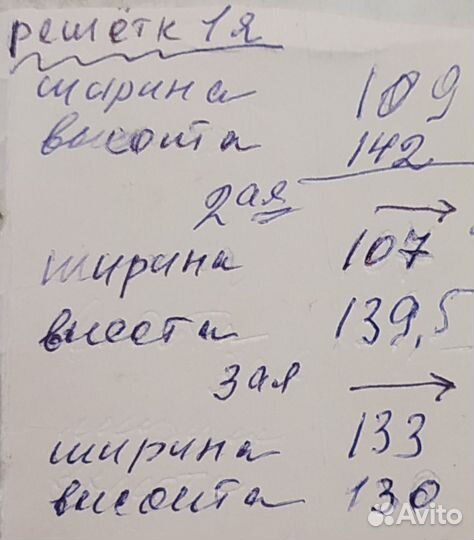 решётк 1я
ширина 109
высота 142
2ая
ширина 107
высота 139,5
3ая
ширина 133
высота 130
Avito